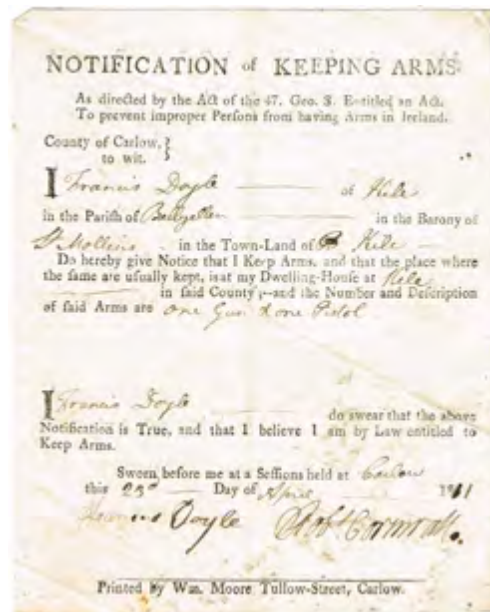 NOTIFICATION of KEEPING ARMS.
As directed by the Act of the 47. Geo. 3. Entitled an Act.
To prevent improper Persons from having Arms in Ireland.
County of Carlow, }
to wit. }
I Francis Doyle of Kile
in the Parish of in the Barony of
St Mollins in the Town-Land of Kile
Do hereby give Notice that I Keep Arms, and that the place where
the same are usually kept, is at my Dwelling-House at Kile
in said County;—and the Number and Description
of said Arms are one Gun & one Pistol
I Francis Doyle do swear that the above
Notification is True, and that I believe I am by Law entitled to
Keep Arms.
Sworn before me at a Sessions held at Carlow
this 23d Day of April 1811
Francis Doyle Robt Cornwall.
Printed by Wm. Moore Tullow-Street, Carlow.